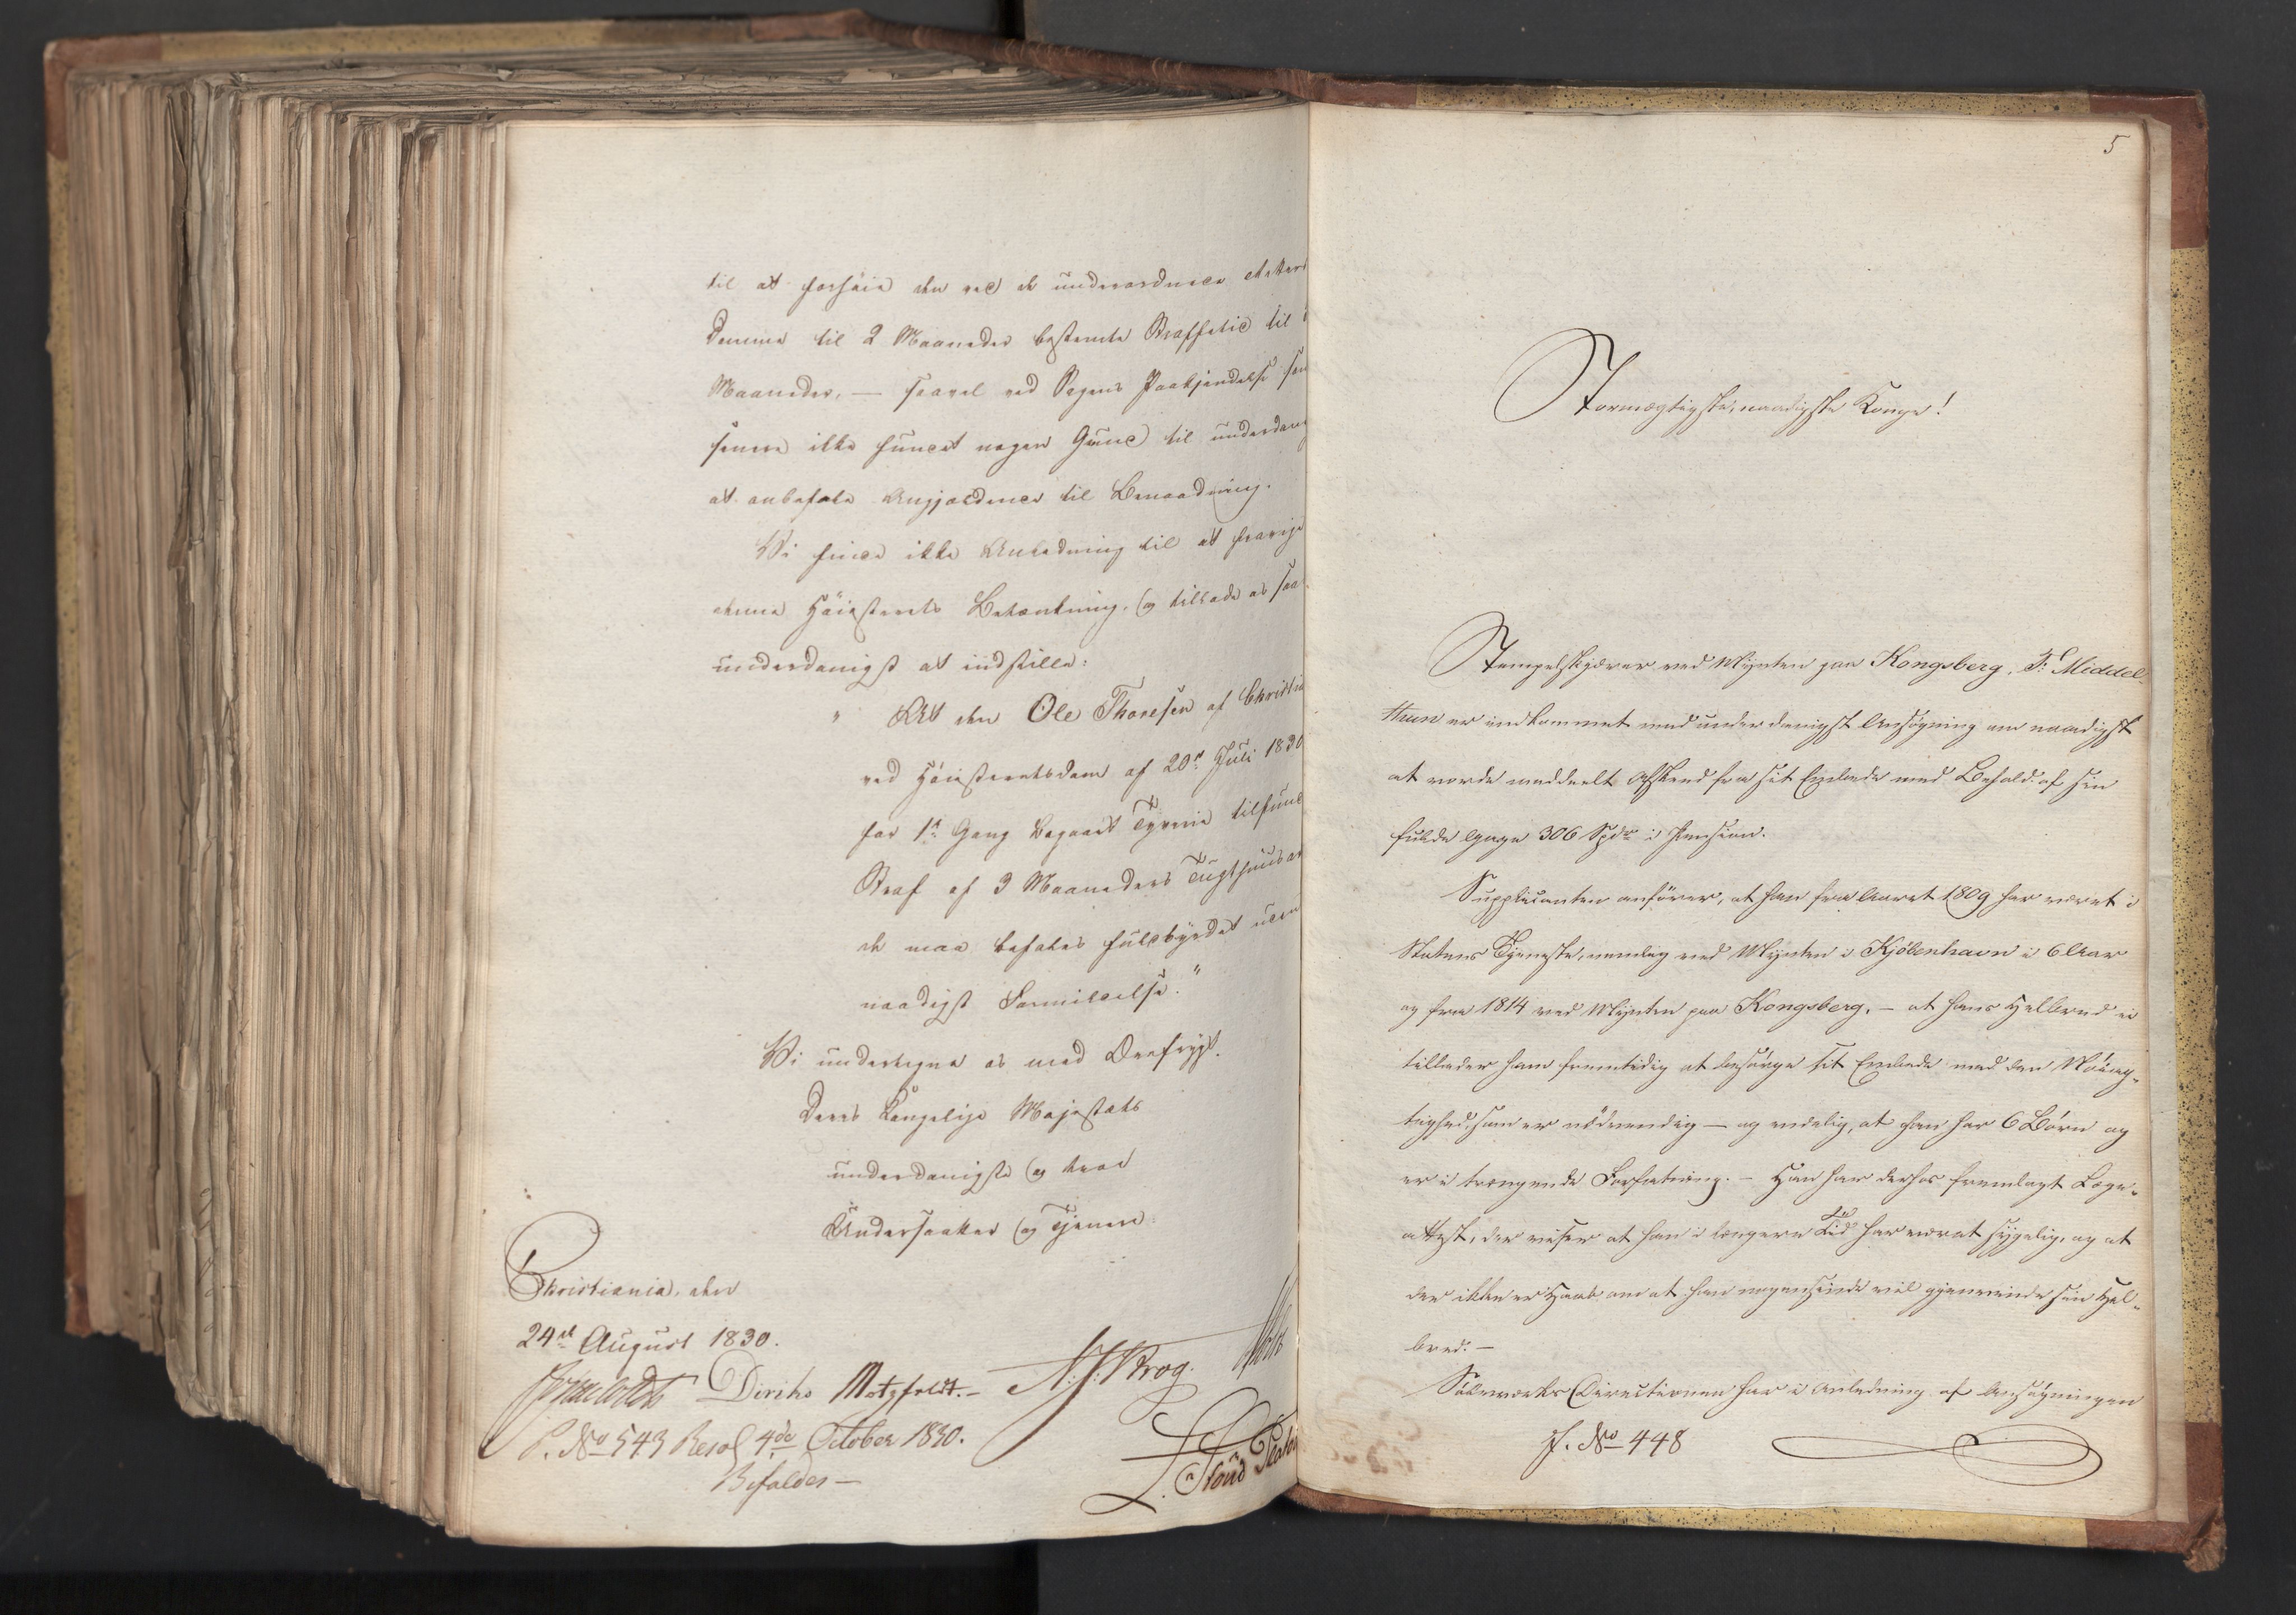 til at forhöie den ved de underordnede
Domme til 2 Maaneder bestemte Straffetid til
Maaneder, — saavel ved Sagens Paakjendelse som
senere ikke fundet nogen Grund til underdanig
at anbefale Angjældende til Benaadning.
Vi finde ikke Anledning til at fravige
denne Höiesterets Betænkning, og tillade os saa
underdanigst at indstille:
" At den Ole Thoresen af Christia
ved Höiesteretsdom af 20de Juli 1830
for 1ste Gang begaaet Tyverie tilfund
Straf af 3 Maaneders Tugthuusar
de maa befales fuldbyrdet uden
naadigst Formildelse."
Vi undertegne os med Ærefrygt.
Deres Kongelige Majestæts
underdanigste og troe
Undersaatter og Tjenere
Christiania, den
24de August 1830.
Diriks Motzfeldt.— Krog.
P. No 543 Resol 4de October 1830.
Befaldes —
5
Stormægtigste, naadigste Konge!
Stempelskjærer ved Mynten paa Kongsberg, Middel-
thun er indkommet med underdanigst Ansøgning om naadigst
at vorde meddeelt Afsked fra sit Embede med Behold af sin
fulde Gage 306 Spdr i Pension.
Supplicanten anfører, at han fra Aaret 1809 har været i
Statens Tjeneste, nemlig ved Mynten i Kjöbenhavn i 6 Aar
og fra 1814 ved Mynten paa Kongsberg, — at hans Helbred ei
tillader ham fremtidig at besørge sit Embede med den Nöiag-
tighed, som er nödvendig — og endelig, at han har 6 Börn og
er i trængende Forfatning. — Han har derhos fremlagt Læge-
attest, der viser at han i længere Tid har været sygelig, og at
der ikke er Haab om at han nogensinde vil gjenvinde sin Hel-
bred. —
Sölvværks Directionen har i Anledning af Ansøgningen
F. No 448